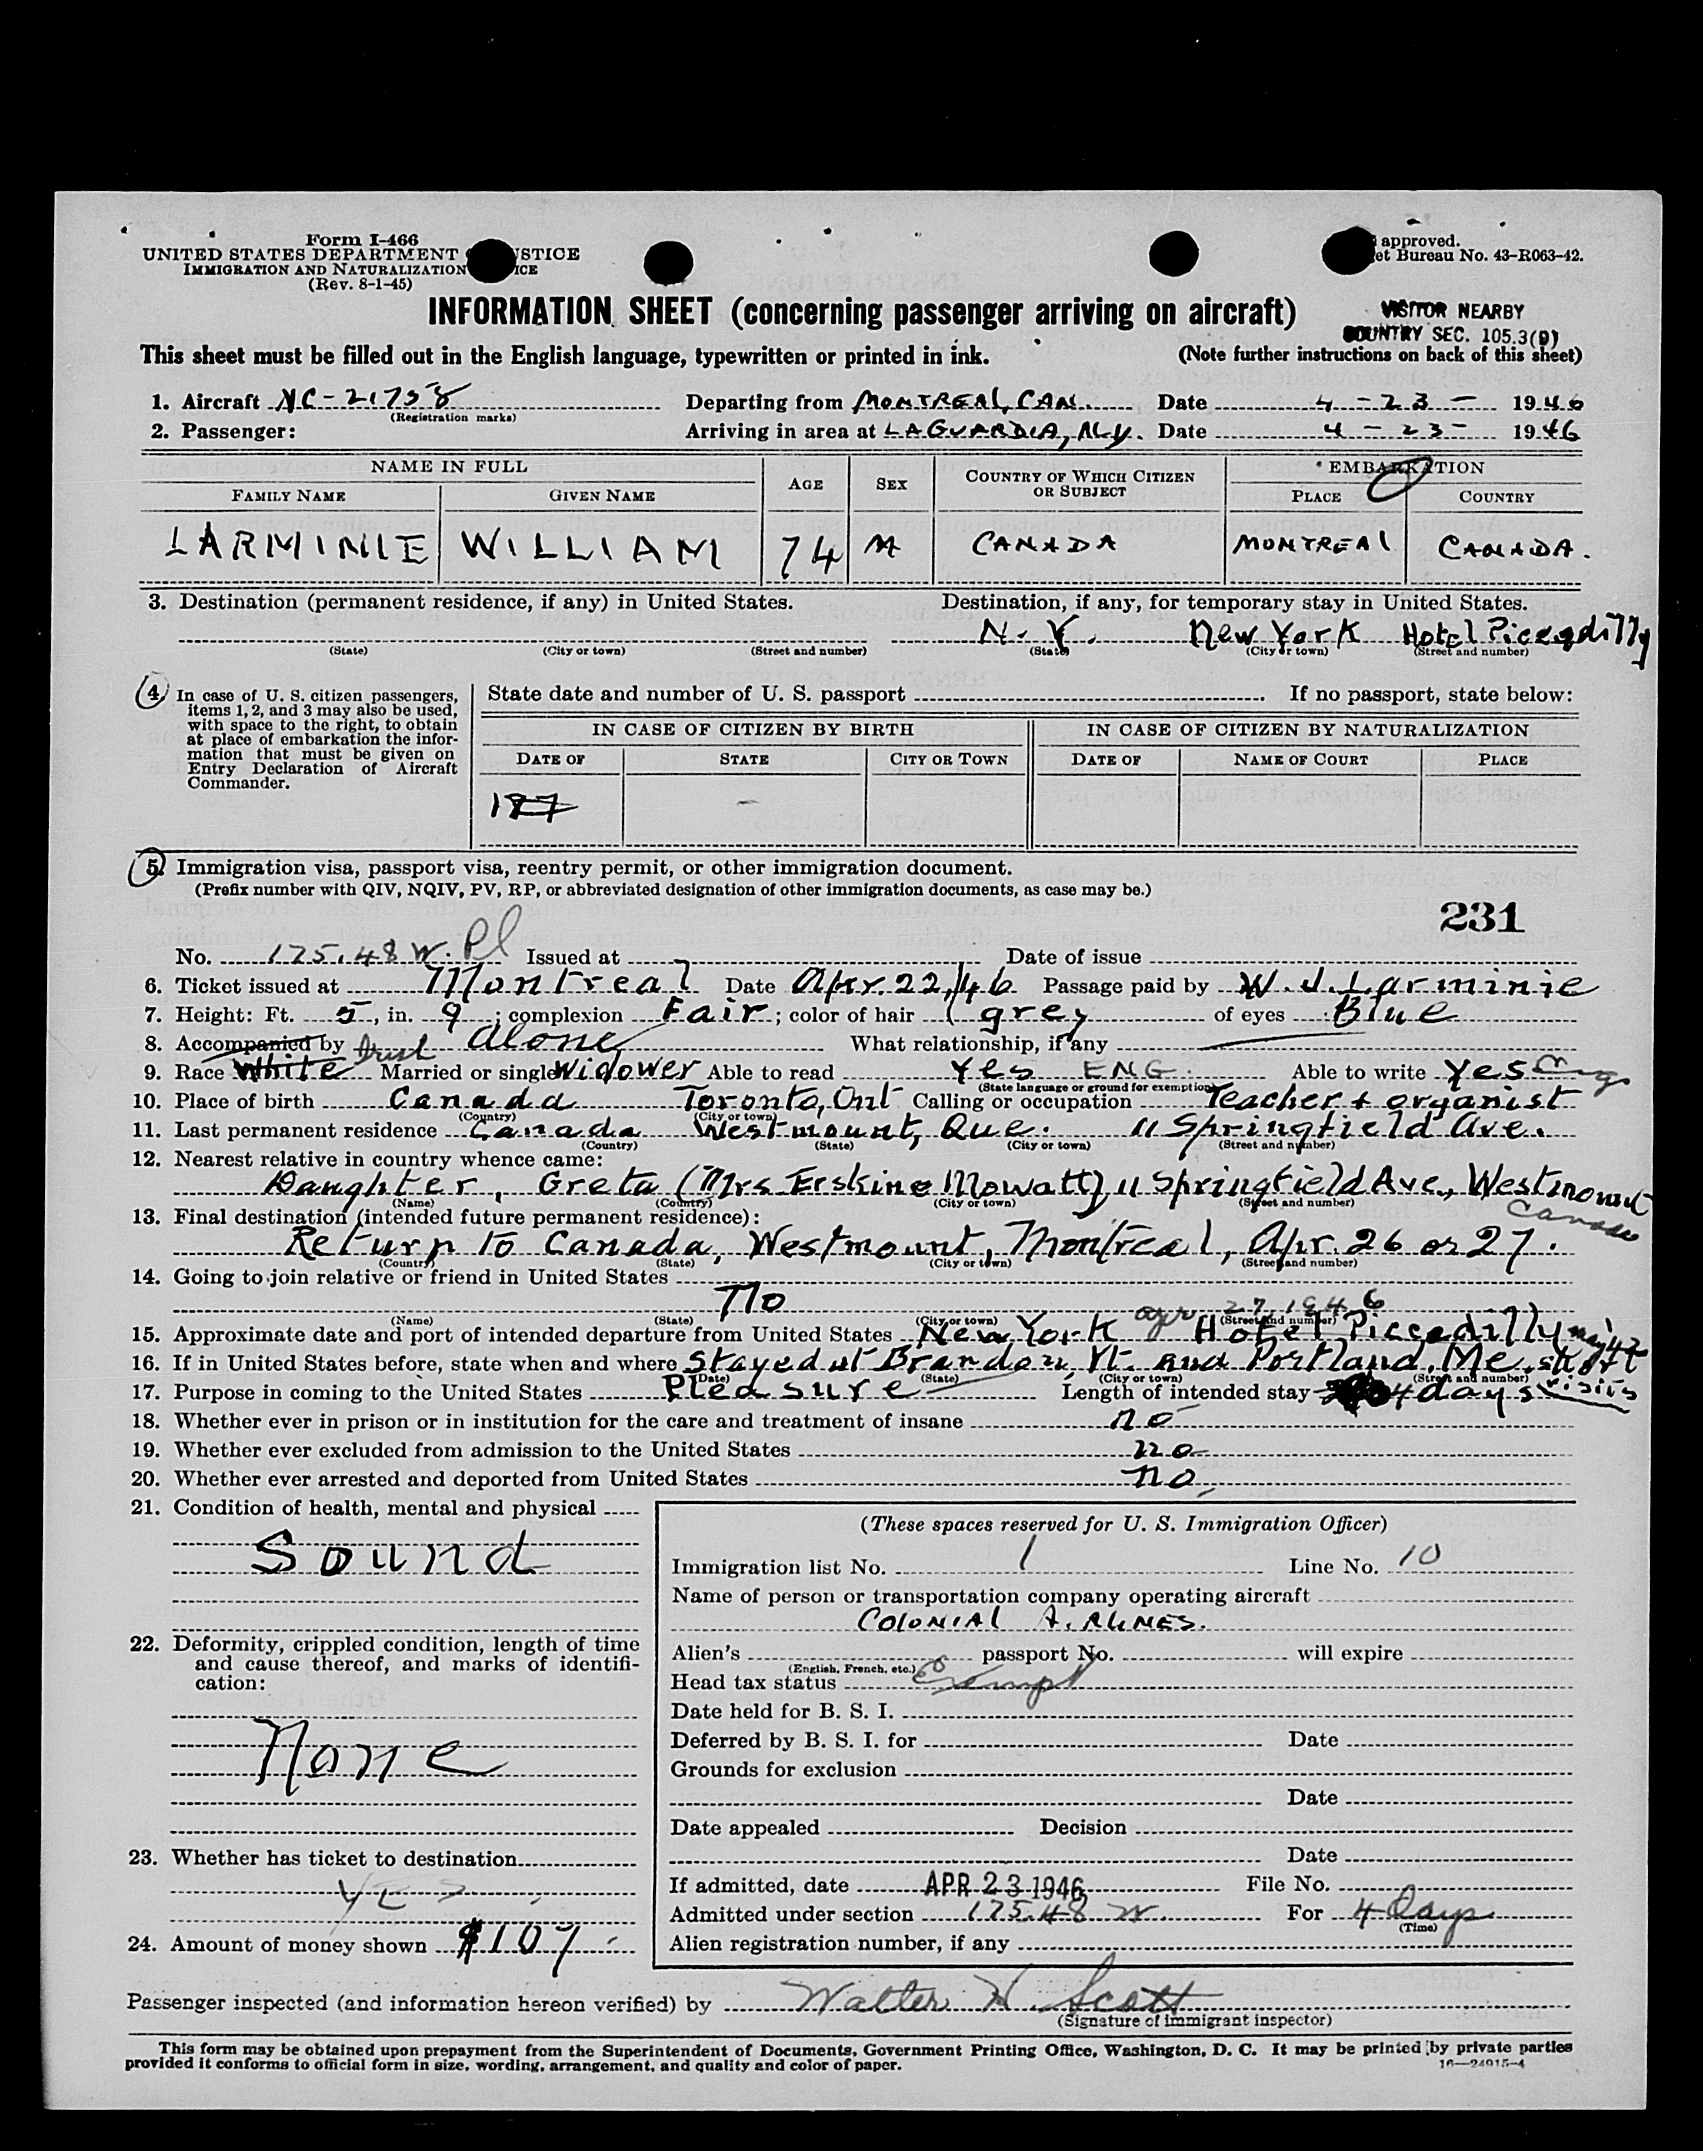 Form I-466
UNITED STATES DEPARTMENT STICE
IMMIGRATION AND NATURALIZATION ICE
(Rev. 8-1-45)
approved.
et Bureau No. 43-R063-42.
INFORMATION SHEET (concerning passenger arriving on aircraft)
VISITOR NEARBY
COUNTRY SEC. 105.3(9)
This sheet must be filled out in the English language, typewritten or printed in ink. (Note further instructions on back of this sheet)
1. Aircraft NC-21758 Departing from MONTREAL, CAN. Date 4-23- 1946
(Registration marks)
2. Passenger: Arriving in area at LAGUARDIA, N.Y. Date 4-23- 1946
NAME IN FULL AGE SEX COUNTRY OF WHICH CITIZEN OR SUBJECT EMBARKATION
FAMILY NAME GIVEN NAME PLACE COUNTRY
LARMINIE WILLIAM 74 M CANADA MONTREAL CANADA.
3. Destination (permanent residence, if any) in United States. Destination, if any, for temporary stay in United States.
N.Y. New York Hotel Picadilly
(State) (City or town) (Street and number) (State) (City or town) (Street and number)
4. In case of U. S. citizen passengers, items 1, 2, and 3 may also be used, with space to the right, to obtain at place of embarkation the information that must be given on Entry Declaration of Aircraft Commander.
State date and number of U. S. passport If no passport, state below:
IN CASE OF CITIZEN BY BIRTH IN CASE OF CITIZEN BY NATURALIZATION
DATE OF STATE CITY OR TOWN DATE OF NAME OF COURT PLACE
5. Immigration visa, passport visa, reentry permit, or other immigration document.
(Prefix number with QIV, NQIV, PV, RP, or abbreviated designation of other immigration documents, as case may be.)
231
No. 175.48 W. Pl Issued at Date of issue
6. Ticket issued at Montreal Date Apr. 22, 46 Passage paid by W. J. Larminie
7. Height: Ft. 5, in. 9; complexion Fair; color of hair grey of eyes Blue
8. Accompanied by Alone What relationship, if any
9. Race White Irish Married or single Widower Able to read Yes ENG. Able to write Yes Eng
(State language or ground for exemption)
10. Place of birth Canada Toronto, Ont Calling or occupation Teacher + organist
(Country) (City or town)
11. Last permanent residence Canada Westmount, Que. 11 Springfield Ave.
(Country) (State) (City or town) (Street and number)
12. Nearest relative in country whence came:
Daughter, Greta (Mrs Erskine Mowatt) 11 Springfield Ave., Westmount
(Name) (Country) (City or town) (Street and number)
Canada
13. Final destination (intended future permanent residence):
Return to Canada, Westmount, Montreal, Apr. 26 or 27.
(Country) (State) (City or town) (Street and number)
14. Going to join relative or friend in United States
No
(Name) (State) (City or town) (Street and number)
apr 27, 1946
15. Approximate date and port of intended departure from United States New York Hotel Piccadilly
16. If in United States before, state when and where Stayed at Brandon, Vt. and Portland, Me. short visits
(Date) (State) (City or town) (Street and number)
17. Purpose in coming to the United States Pleasure Length of intended stay 4 days
18. Whether ever in prison or in institution for the care and treatment of insane no
19. Whether ever excluded from admission to the United States no
20. Whether ever arrested and deported from United States no
21. Condition of health, mental and physical
Sound
22. Deformity, crippled condition, length of time and cause thereof, and marks of identification:
None
23. Whether has ticket to destination
yes
24. Amount of money shown $107
(These spaces reserved for U. S. Immigration Officer)
Immigration list No. 1 Line No. 10
Name of person or transportation company operating aircraft
COLONIAL AIRLINES.
Alien's passport No. will expire
(English, French, etc.)
Head tax status Exempt
Date held for B. S. I.
Deferred by B. S. I. for Date
Grounds for exclusion
Date
Date appealed Decision
Date
If admitted, date APR 23 1946 File No.
Admitted under section 175.48 W For 4 Days
(Time)
Alien registration number, if any
Passenger inspected (and information hereon verified) by Walter H. Scott
(Signature of immigrant inspector)
This form may be obtained upon prepayment from the Superintendent of Documents, Government Printing Office, Washington, D. C. It may be printed by private parties
provided it conforms to official form in size, wording, arrangement, and quality and color of paper.
16—24915-4